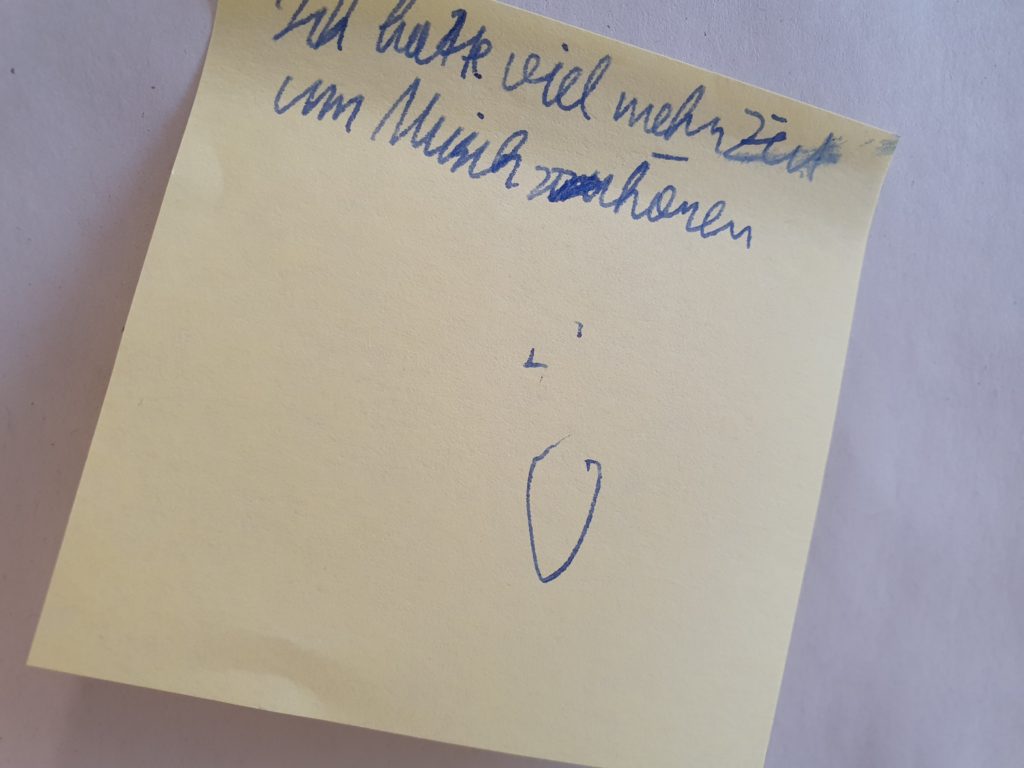 Ich hatte viel mehr Zeit
um Musik zu hören